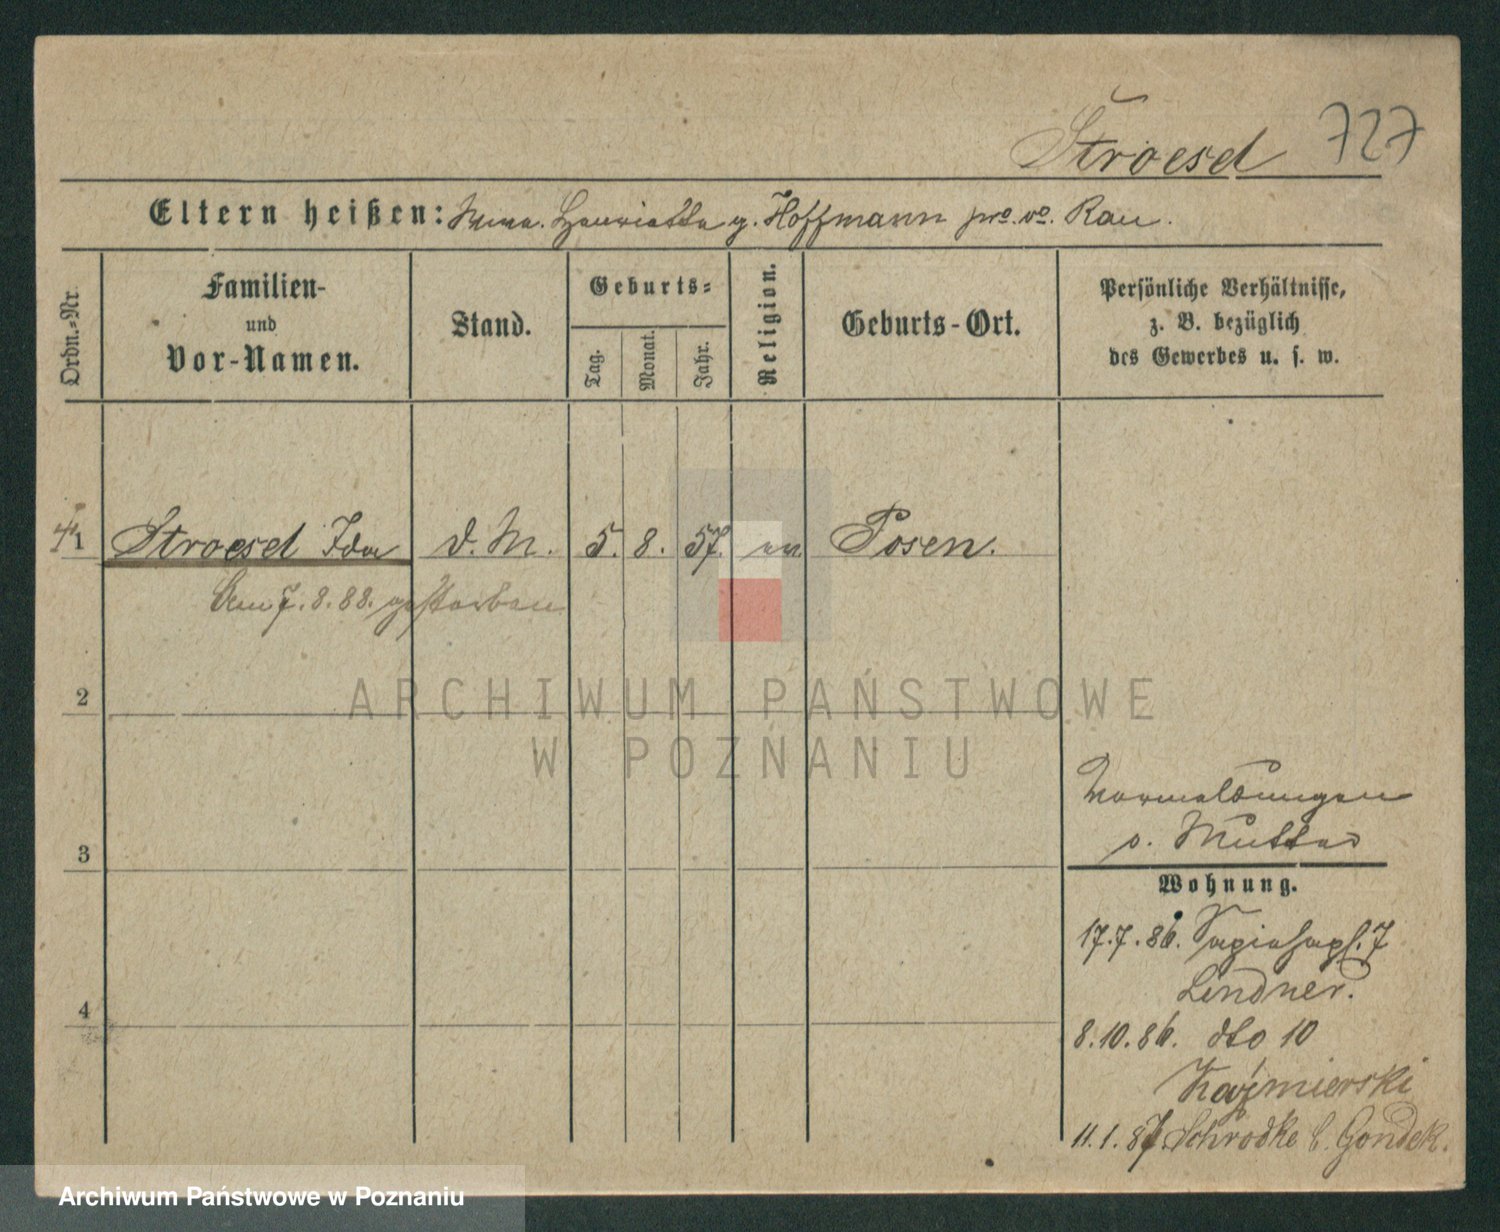 Stroesel 727
Eltern heißen: Wwe. Henriette g. Hoffmann pro. vo. Rau.
Ordn.-Nr.
Familien-
und
Vor-Namen.
Stand.
Geburts-
Tag.
Monat.
Jahr.
Religion.
Geburts-Ort.
Persönliche Verhältnisse,
z. B. bezüglich
des Gewerbes u. s. w.
1 Stroesel Ida d. M. 5. 8. 57. ev Posen.
Am 7. 8. 88. gestorben
2
ARCHIWUM PAŃSTWOWE
W POZNANIU
3
4
Vormeldungen
s. Mutter
Wohnung.
17. 7. 86. Sapiehapl. 7
Lindner.
8. 10. 86. dto 10
Kaźmierski
11. 1. 87. Schrodke b. Gondek.
Archiwum Państwowe w Poznaniu